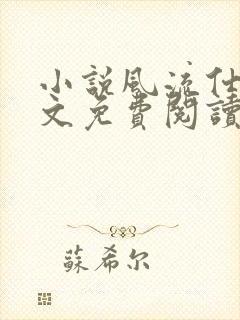 小說風流仕
文免費閱讀
蘇希尔